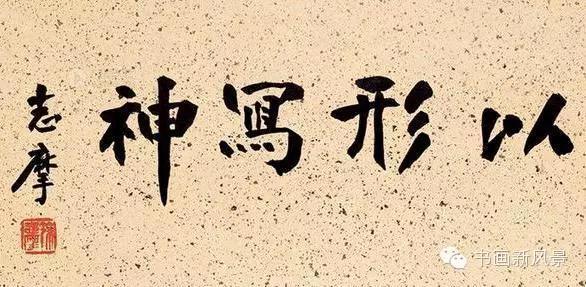 以形寫神
志摩
书画新风景